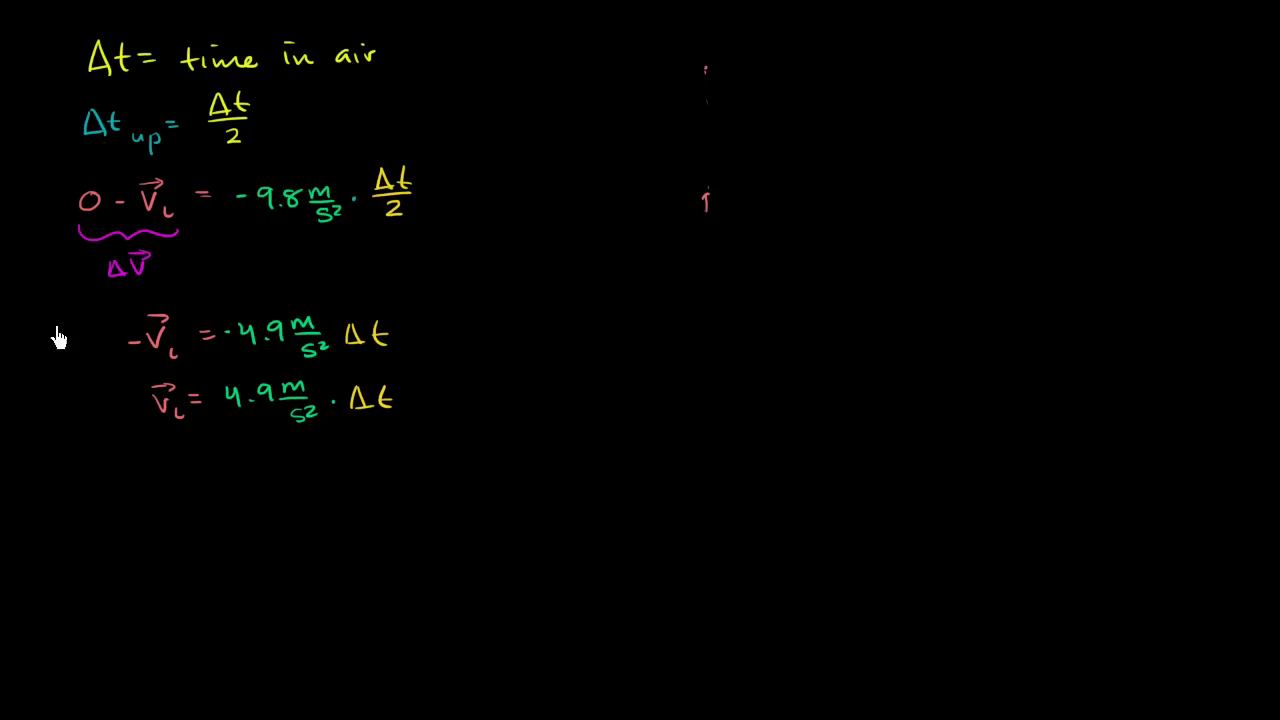 Δt = time in air
Δt up = Δt/2
0 - V⃗ᵢ = -9.8 m/s² · Δt/2
ΔV⃗
-V⃗ᵢ = -4.9 m/s² Δt
V⃗ᵢ = 4.9 m/s² · Δt